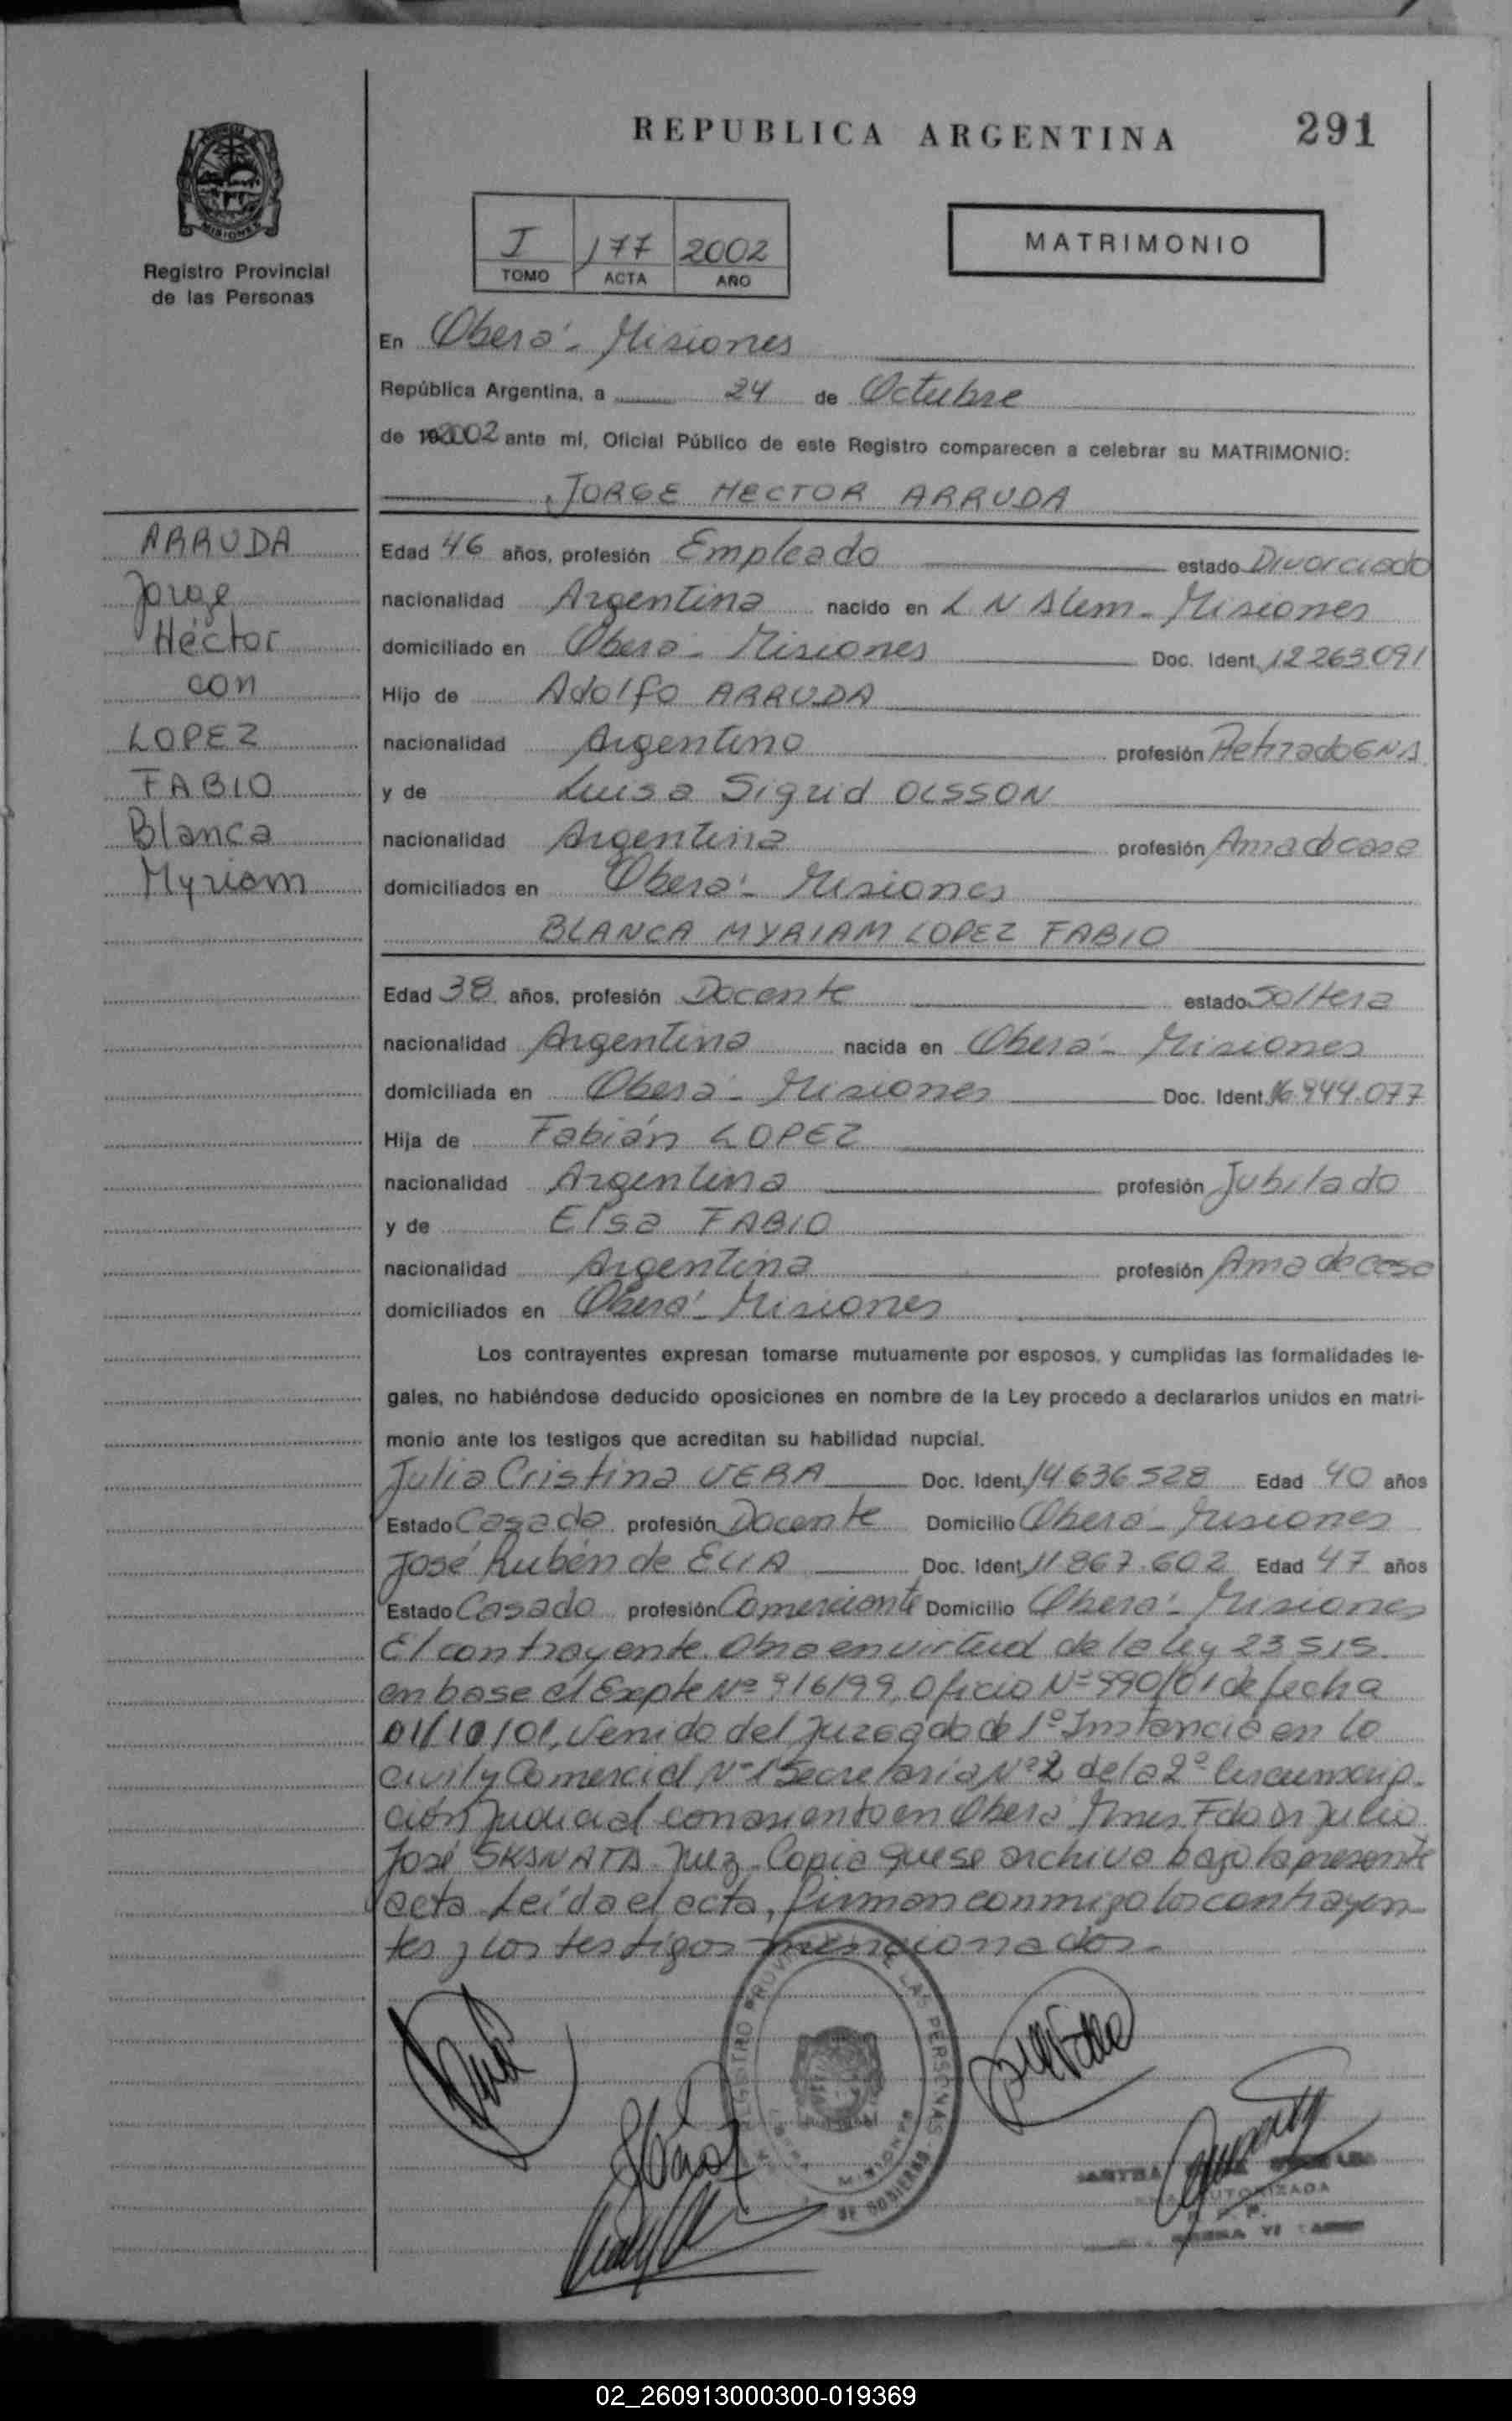 REPUBLICA ARGENTINA
291
MISIONES
Registro Provincial
de las Personas
I 177 2002
TOMO ACTA AÑO
MATRIMONIO
En Oberá - Misiones
República Argentina, a 24 de Octubre
de 2002 ante mí, Oficial Público de este Registro comparecen a celebrar su MATRIMONIO:
JORGE HECTOR ARRUDA
ARRUDA
Jorge
Héctor
con
LOPEZ
FABIO
Blanca
Myriam
Edad 46 años, profesión Empleado estado Divorciado
nacionalidad Argentina nacido en L N Alem - Misiones
domiciliado en Oberá - Misiones Doc. Ident. 12263091
Hijo de Adolfo ARRUDA
nacionalidad Argentino profesión Retirado GNA
y de Luisa Sigrid OLSSON
nacionalidad Argentina profesión Ama de casa
domiciliados en Oberá - Misiones
BLANCA MYRIAM LOPEZ FABIO
Edad 38 años, profesión Docente estado Soltera
nacionalidad Argentina nacida en Oberá - Misiones
domiciliada en Oberá - Misiones Doc. Ident. 16.944.077
Hija de Fabián LOPEZ
nacionalidad Argentina profesión Jubilado
y de Elsa FABIO
nacionalidad Argentina profesión Ama de casa
domiciliados en Oberá - Misiones
Los contrayentes expresan tomarse mutuamente por esposos, y cumplidas las formalidades le-
gales, no habiéndose deducido oposiciones en nombre de la Ley procedo a declararlos unidos en matri-
monio ante los testigos que acreditan su habilidad nupcial.
Julia Cristina VERA Doc. Ident. 14636528 Edad 40 años
Estado Casada profesión Docente Domicilio Oberá - Misiones
José Rubén de ELIA Doc. Ident. 11.867.602 Edad 47 años
Estado Casado profesión Comerciante Domicilio Oberá - Misiones
El contrayente. Obra en virtud de la ley 23515.
en base al Expte Nº 916/99, Oficio Nº 990/01 de fecha
01/10/01, Venido del Juzgado de 1º Instancia en lo
Civil y Comercial Nº 1 Secretaría Nº 2 de la 2º Circunscrip-
ción Judicial con asiento en Oberá Mnes Fdo Dr Julio
José SKANATA Juez. Copia que se archiva bajo la presente
acta. Leída el acta, firman conmigo los contrayen-
tes y los testigos mencionados.-
REGISTRO PROVINCIAL DE LAS PERSONAS
MISIONES
DE GOBIERNO
AUTORIZADA
02_260913000300-019369